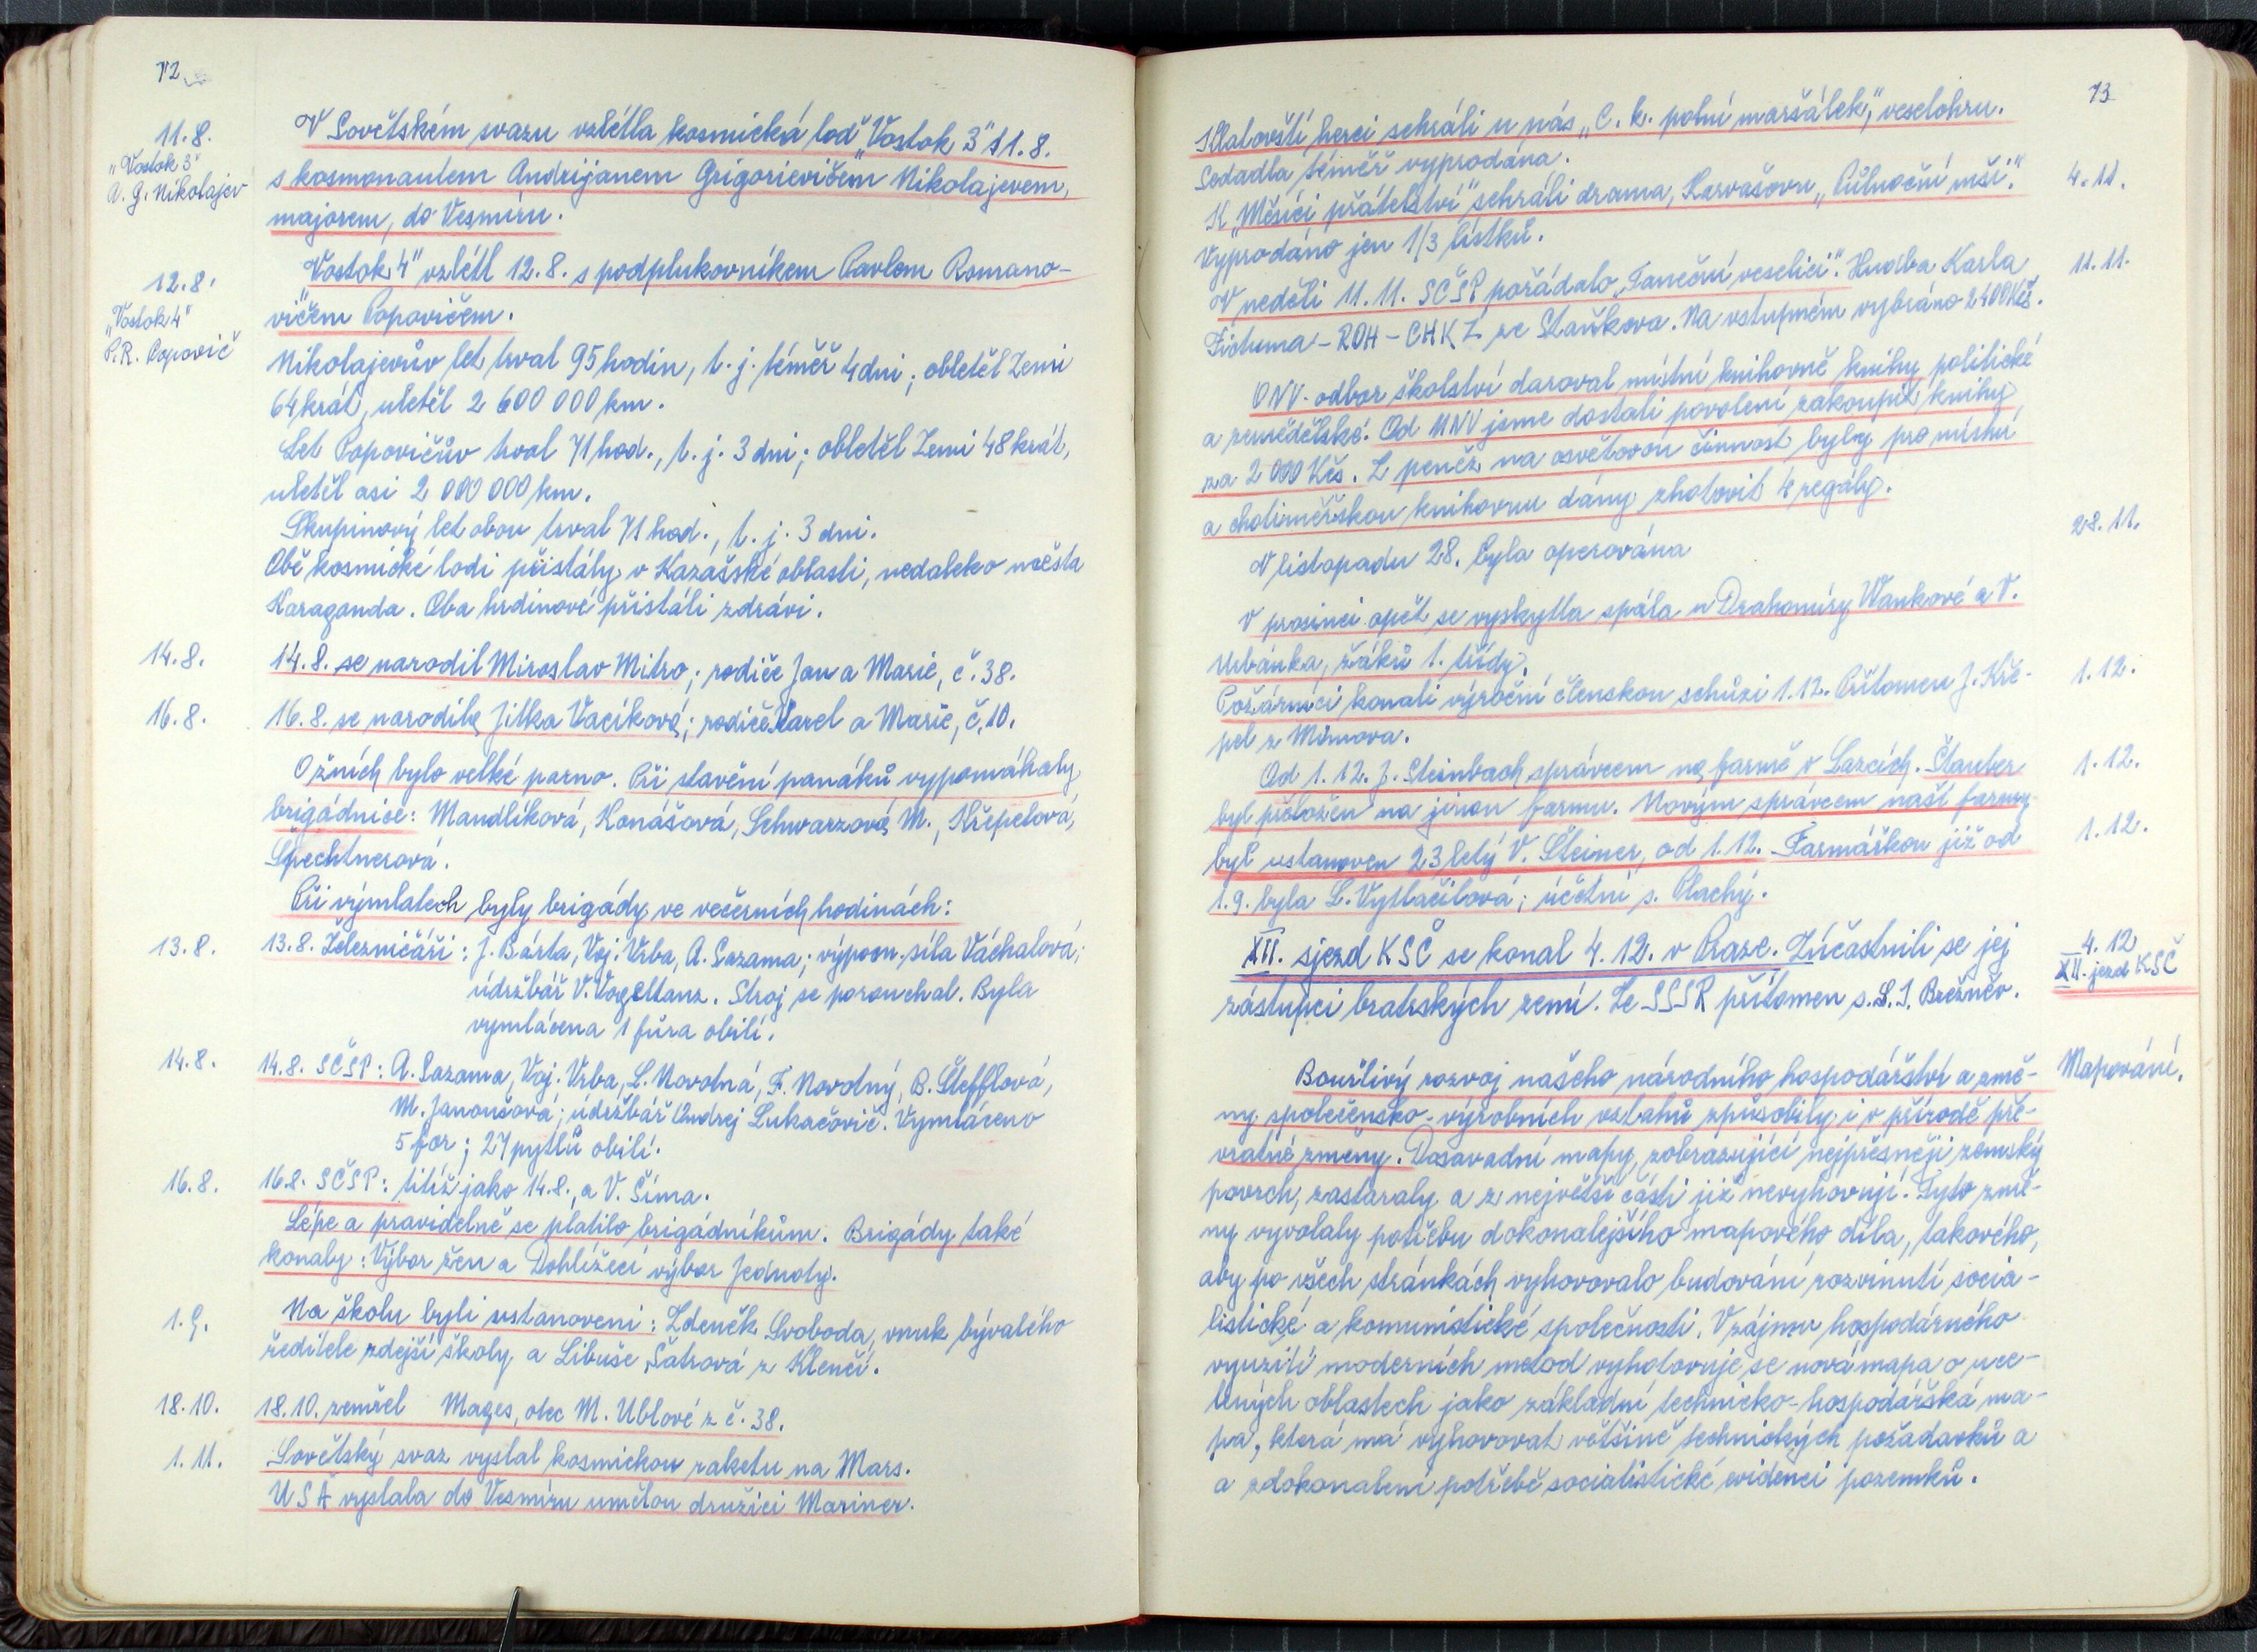 72
11.8.
"Vostok 3"
A. G. Nikolajev
V Sovětském svazu vzlétla kosmická loď "Vostok 3" 11.8.
s kosmonautem Andrijanem Grigorievičem Nikolajevem,
majorem, do Vesmíru.
12.8.
"Vostok 4"
P. R. Popovič
"Vostok 4" vzlétl 12.8. s podplukovníkem Pavlem Romano-
vičem Popovičem.
Nikolajevův let trval 95 hodin, t. j. téměř 4 dni; obletěl Zemi
64 krát, uletěl 2 600 000 km.
Let Popovičův trval 71 hod., t. j. 3 dni; obletěl Zemi 48 krát,
uletěl asi 2 000 000 km.
Skupinový let obou trval 71 hod., t. j. 3 dni.
Obě kosmické lodi přistály v Kazašské oblasti, nedaleko města
Karaganda. Oba hrdinové přistáli zdrávi.
14.8.
14.8. se narodil Miroslav Mitro; rodiče Jan a Marie, č. 38.
16.8.
16.8. se narodila Jitka Vacíková; rodiče Karel a Marie, č. 10.
O žních bylo velké parno. Při stavění panáků vypomáhaly
brigádnice: Mandlíková, Konášová, Schwarzová M., Křepelová,
Špechtnerová.
Při výmlatech byly brigády ve večerních hodinách:
13.8.
13.8. Železničáři: J. Bárta, Voj. Vrba, A. Sazama; výpom. síla Váchalová;
údržbář V. Vogeltanz. Stroj se porouchal. Byla
vymlácena 1 fůra obilí.
14.8.
14.8. SČSP: A. Sazama, Voj. Vrba, L. Novotná, F. Novotný, B. Štefflová,
M. Janoušová; údržbář Ondrej Lukačovič. Vymláceno
5 for; 27 pytlů obilí.
16.8.
16.8. SČSP: titíž jako 14.8., a V. Šíma.
Lépe a pravidelně se platilo brigádníkům. Brigády také
konaly: Výbor žen a Dohlížecí výbor Jednoty.
1.9.
Na školu byli ustanoveni: Zdeněk Svoboda, vnuk bývalého
ředitele zdejší školy a Libuše Šatrová z Klenčí.
18.10.
18.10. zemřel Mages, otec M. Ublové z č. 38.
1.11.
Sovětský svaz vyslal kosmickou raketu na Mars.
USA vyslala do Vesmíru umělou družici Mariner.
73
Klatovští herci sehráli u nás "C. k. polní maršálek", veselohru.
Sedadla téměř vyprodána.
4.11.
K "Měsíci přátelství" sehráli drama, Karvašovu "Půlnoční mši".
Vyprodáno jen 1/3 lístků.
11.11.
V neděli 11.11. SČSP pořádalo "Taneční veselici". Hudba Karla
Fictuma - ROH - CHKZ ze Staňkova. Na vstupném vybráno 2400 Kčs.
ONV - odbor školství daroval místní knihovně knihy politické
a zemědělské. Od MNV jsme dostali povolení zakoupit knihy
za 2 000 Kčs. Z peněz na osvětovou činnost byly pro místní
a choliměřskou knihovnu dány zhotovit 4 regály.
28.11.
V listopadu 28. byla operována
V prosinci opět se vyskytla spála u Drahomíry Waukové a V.
Urbánka, žáků 1. třídy.
1.12.
Požárníci konali výroční členskou schůzi 1.12. Přítomen J. Kře-
pel z Mimova.
1.12.
Od 1.12. J. Steinbach správcem na farmě v Lazcích. Štauber
byl přeložen na jinou farmu. Novým správcem naší farmy
1.12.
byl ustanoven 23 letý V. Šteiner, od 1.12. Farmářkou již od
1.9. byla L. Vytlačilová; účetní s. Plachý.
4.12
XII. sjezd KSČ
XII. sjezd KSČ se konal 4.12. v Praze. Zúčastnili se jej
zástupci bratrských zemí. Ze SSSR přítomen s. L. I. Brežněv.
Mapování.
Bouřlivý rozvoj našeho národního hospodářství a změ-
ny společensko-výrobních vztahů způsobily i v přírodě pře-
vratné změny. Dosavadní mapy, zobrazující nejpřesněji zemský
povrch, zastaraly a z největší části již nevyhovují. Tyto změ-
ny vyvolaly potřebu dokonalejšího mapového díla, takového,
aby po všech stránkách vyhovovalo budování rozvinutí socia-
listické a komunistické společnosti. V zájmu hospodárného
využití moderních metod vyhotovuje se nová mapa o uce-
lených oblastech jako základní technicko-hospodářská ma-
pa, která má vyhovovat většině technických požadavků a
a zdokonalení potřebě socialistické evidenci pozemků.